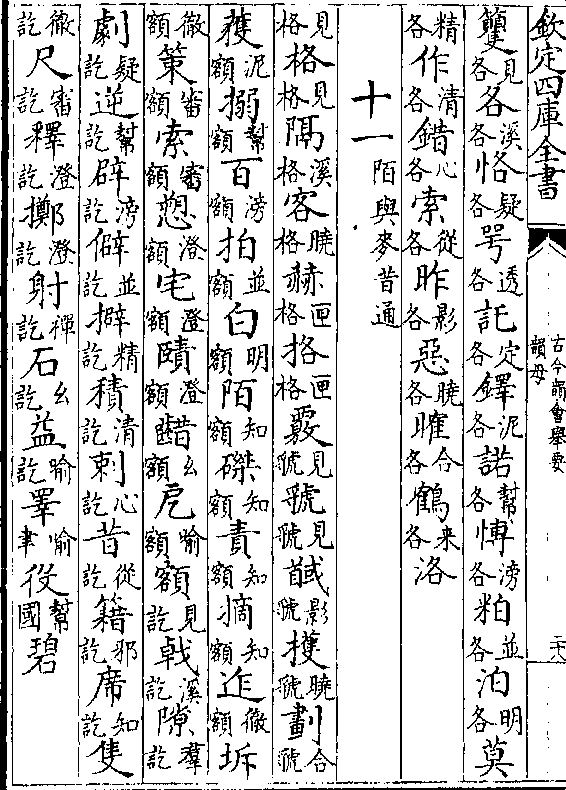 欽定四庫全書
古今韻會舉要
韻母
籰見各各溪各恪疑各咢透各託定各鐸泥各諾幫各博滂各粕並各泊明各莫
精各作清各錯心各索從各昨影各惡曉各臛合各鶴來各洛
十一陌與麥昔通
見格格見格隔溪格客曉格赫匣格㧁匣格覈見虢虢見虢馘影虢擭曉虢劃合虢
獲泥額搦幫額百滂額拍並額白明額陌知額磔知額責知額摘知額迮徹額坼
徹額策審額索審額愬澄額宅澄額賾澄額齰幺額戹喻額額見訖戟溪訖隙羣訖
劇疑訖逆幫訖辟滂訖僻並訖擗精訖積清訖刺心訖昔從訖籍邪訖席知訖隻
徹訖尺審訖釋澄訖擲澄訖射禪訖石幺訖益喻訖睪喻聿役幫國碧